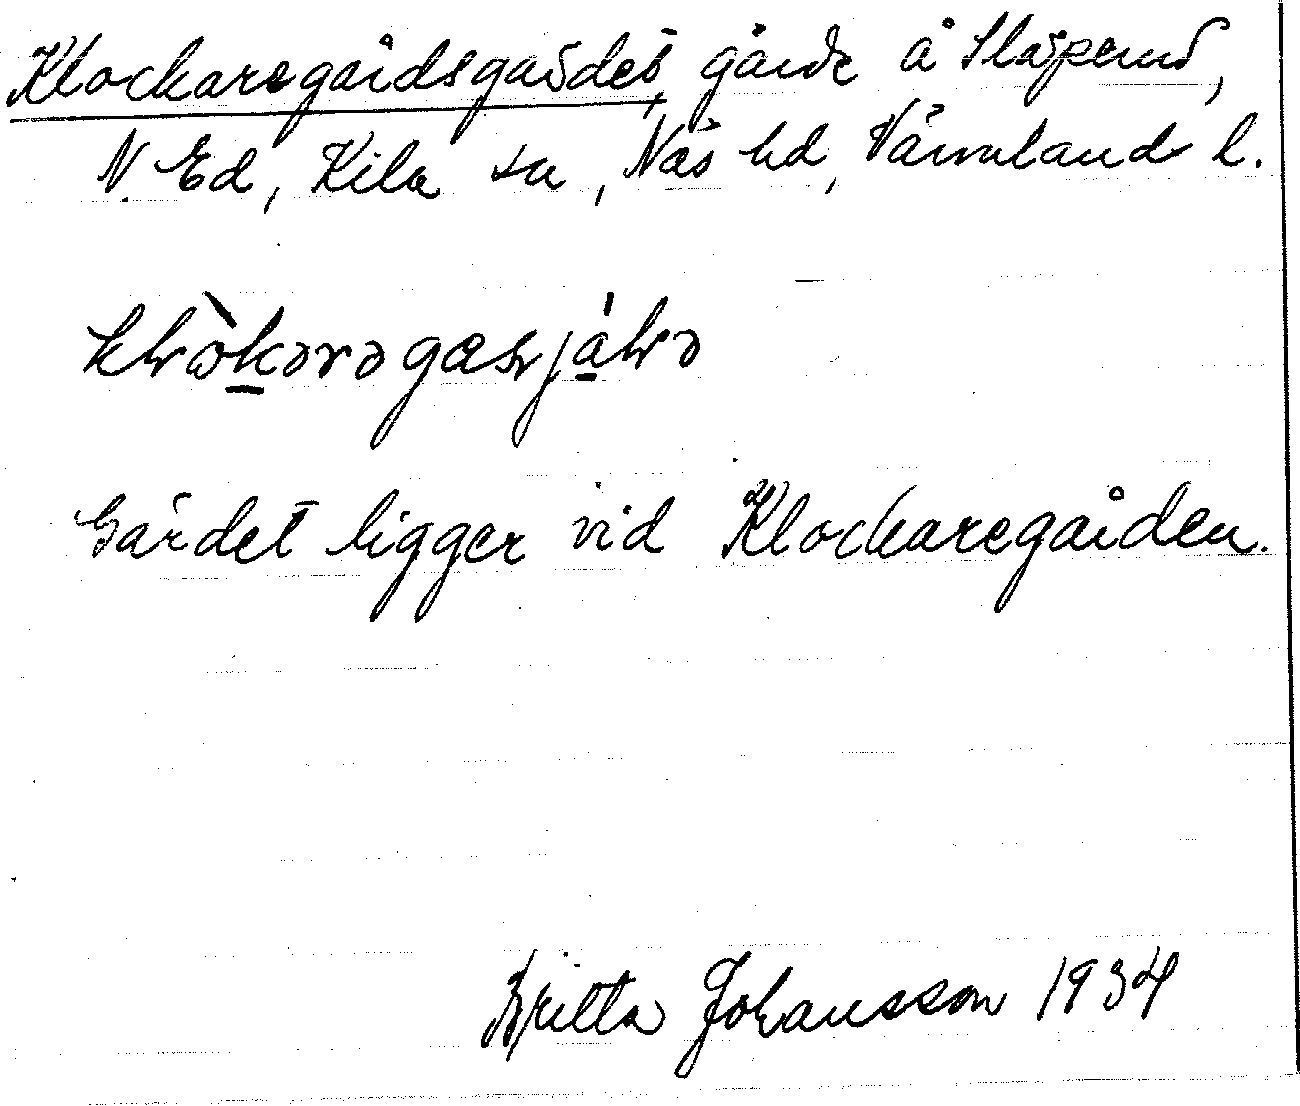 Klockaregårdsgärdet, gärde å Slöperud,
N. Ed, Kila sn, Näs hd, Värmlands l.
Gärdet ligger vid Klockaregården.
Britta Johansson 1934